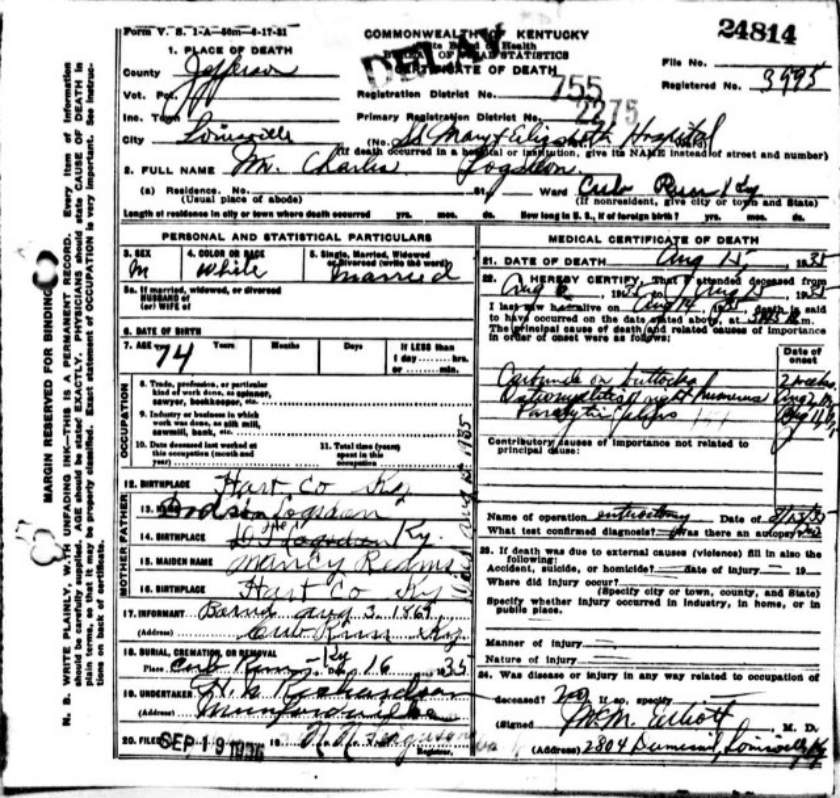 Form V. S. 1-A-50m-6-17-31
COMMONWEALTH OF KENTUCKY
State Board of Health
BUREAU OF VITAL STATISTICS
CERTIFICATE OF DEATH
DELAY
24814
File No.
Registered No. 3995
1. PLACE OF DEATH
County Jefferson
Vot. Pct.
Inc. Town
City Louisville
Registration District No. 755
Primary Registration District No. 2275
(No. SS Mary & Elizabeth Hospital
(If death occurred in a hospital or institution, give its NAME instead of street and number)
2. FULL NAME Mr. Charlie Logsdon
(a) Residence. No. St., Ward Cub Run Ky
(Usual place of abode) (If nonresident, give city or town and State)
Length of residence in city or town where death occurred yrs. mos. ds. How long in U. S., if of foreign birth? yrs. mos. ds.
MARGIN RESERVED FOR BINDING
N. B. WRITE PLAINLY, WITH UNFADING INK—THIS IS A PERMANENT RECORD. Every item of information
should be carefully supplied. AGE should be stated EXACTLY. PHYSICIANS should state CAUSE OF DEATH in
plain terms, so that it may be properly classified. Exact statement of OCCUPATION is very important. See instruc-
tions on back of certificate.
PERSONAL AND STATISTICAL PARTICULARS
3. SEX M
4. COLOR OR RACE White
5. Single, Married, Widowed or Divorced (write the word) Married
5a. If married, widowed, or divorced
HUSBAND of
(or) WIFE of
6. DATE OF BIRTH
7. AGE 74 Years Months Days If LESS than
1 day ........ hrs.
or ........ min.
OCCUPATION
8. Trade, profession, or particular
kind of work done, as spinner,
sawyer, bookkeeper, etc.
9. Industry or business in which
work was done, as silk mill,
sawmill, bank, etc.
10. Date deceased last worked at
this occupation (month and
year)
11. Total time (years)
spent in this
occupation
12. BIRTHPLACE Hart Co Ky.
FATHER
13. NAME Logsdon
14. BIRTHPLACE Ky.
MOTHER
15. MAIDEN NAME Nancy
16. BIRTHPLACE Hart Co Ky
17. INFORMANT Aug 3. 1861
(Address) Cub Run Ky.
18. BURIAL, CREMATION, OR REMOVAL
Place Cub Run Ky Date 16 35
19. UNDERTAKER Richardson
(Address) Munfordville
20. FILED SEP 19 1936
Registrar.
MEDICAL CERTIFICATE OF DEATH
21. DATE OF DEATH Aug 15, 1935
22. I HEREBY CERTIFY, That I attended deceased from
Aug 6, 1935 to Aug 15 1935
I last saw h alive on Aug 14 1935, death is said
to have occurred on the date stated above, at m.
The principal cause of death and related causes of importance
in order of onset were as follows:
Date of onset
Carbuncle on buttocks 2 weeks
Osteomyelitis right humerus Aug 2
Paralytic ileus Aug 11
Contributory causes of importance not related to
principal cause:
Name of operation enterostomy Date of 8/13/35
What test confirmed diagnosis? Was there an autopsy? no
23. If death was due to external causes (violence) fill in also the
following:
Accident, suicide, or homicide? date of injury 19
Where did injury occur?
(Specify city or town, county, and State)
Specify whether injury occurred in industry, in home, or in
public place.
Manner of injury
Nature of injury
24. Was disease or injury in any way related to occupation of
deceased? no If so, specify
(Signed M. M. Elliott, M. D.
(Address) 2804 Dumesnil, Louisville Ky